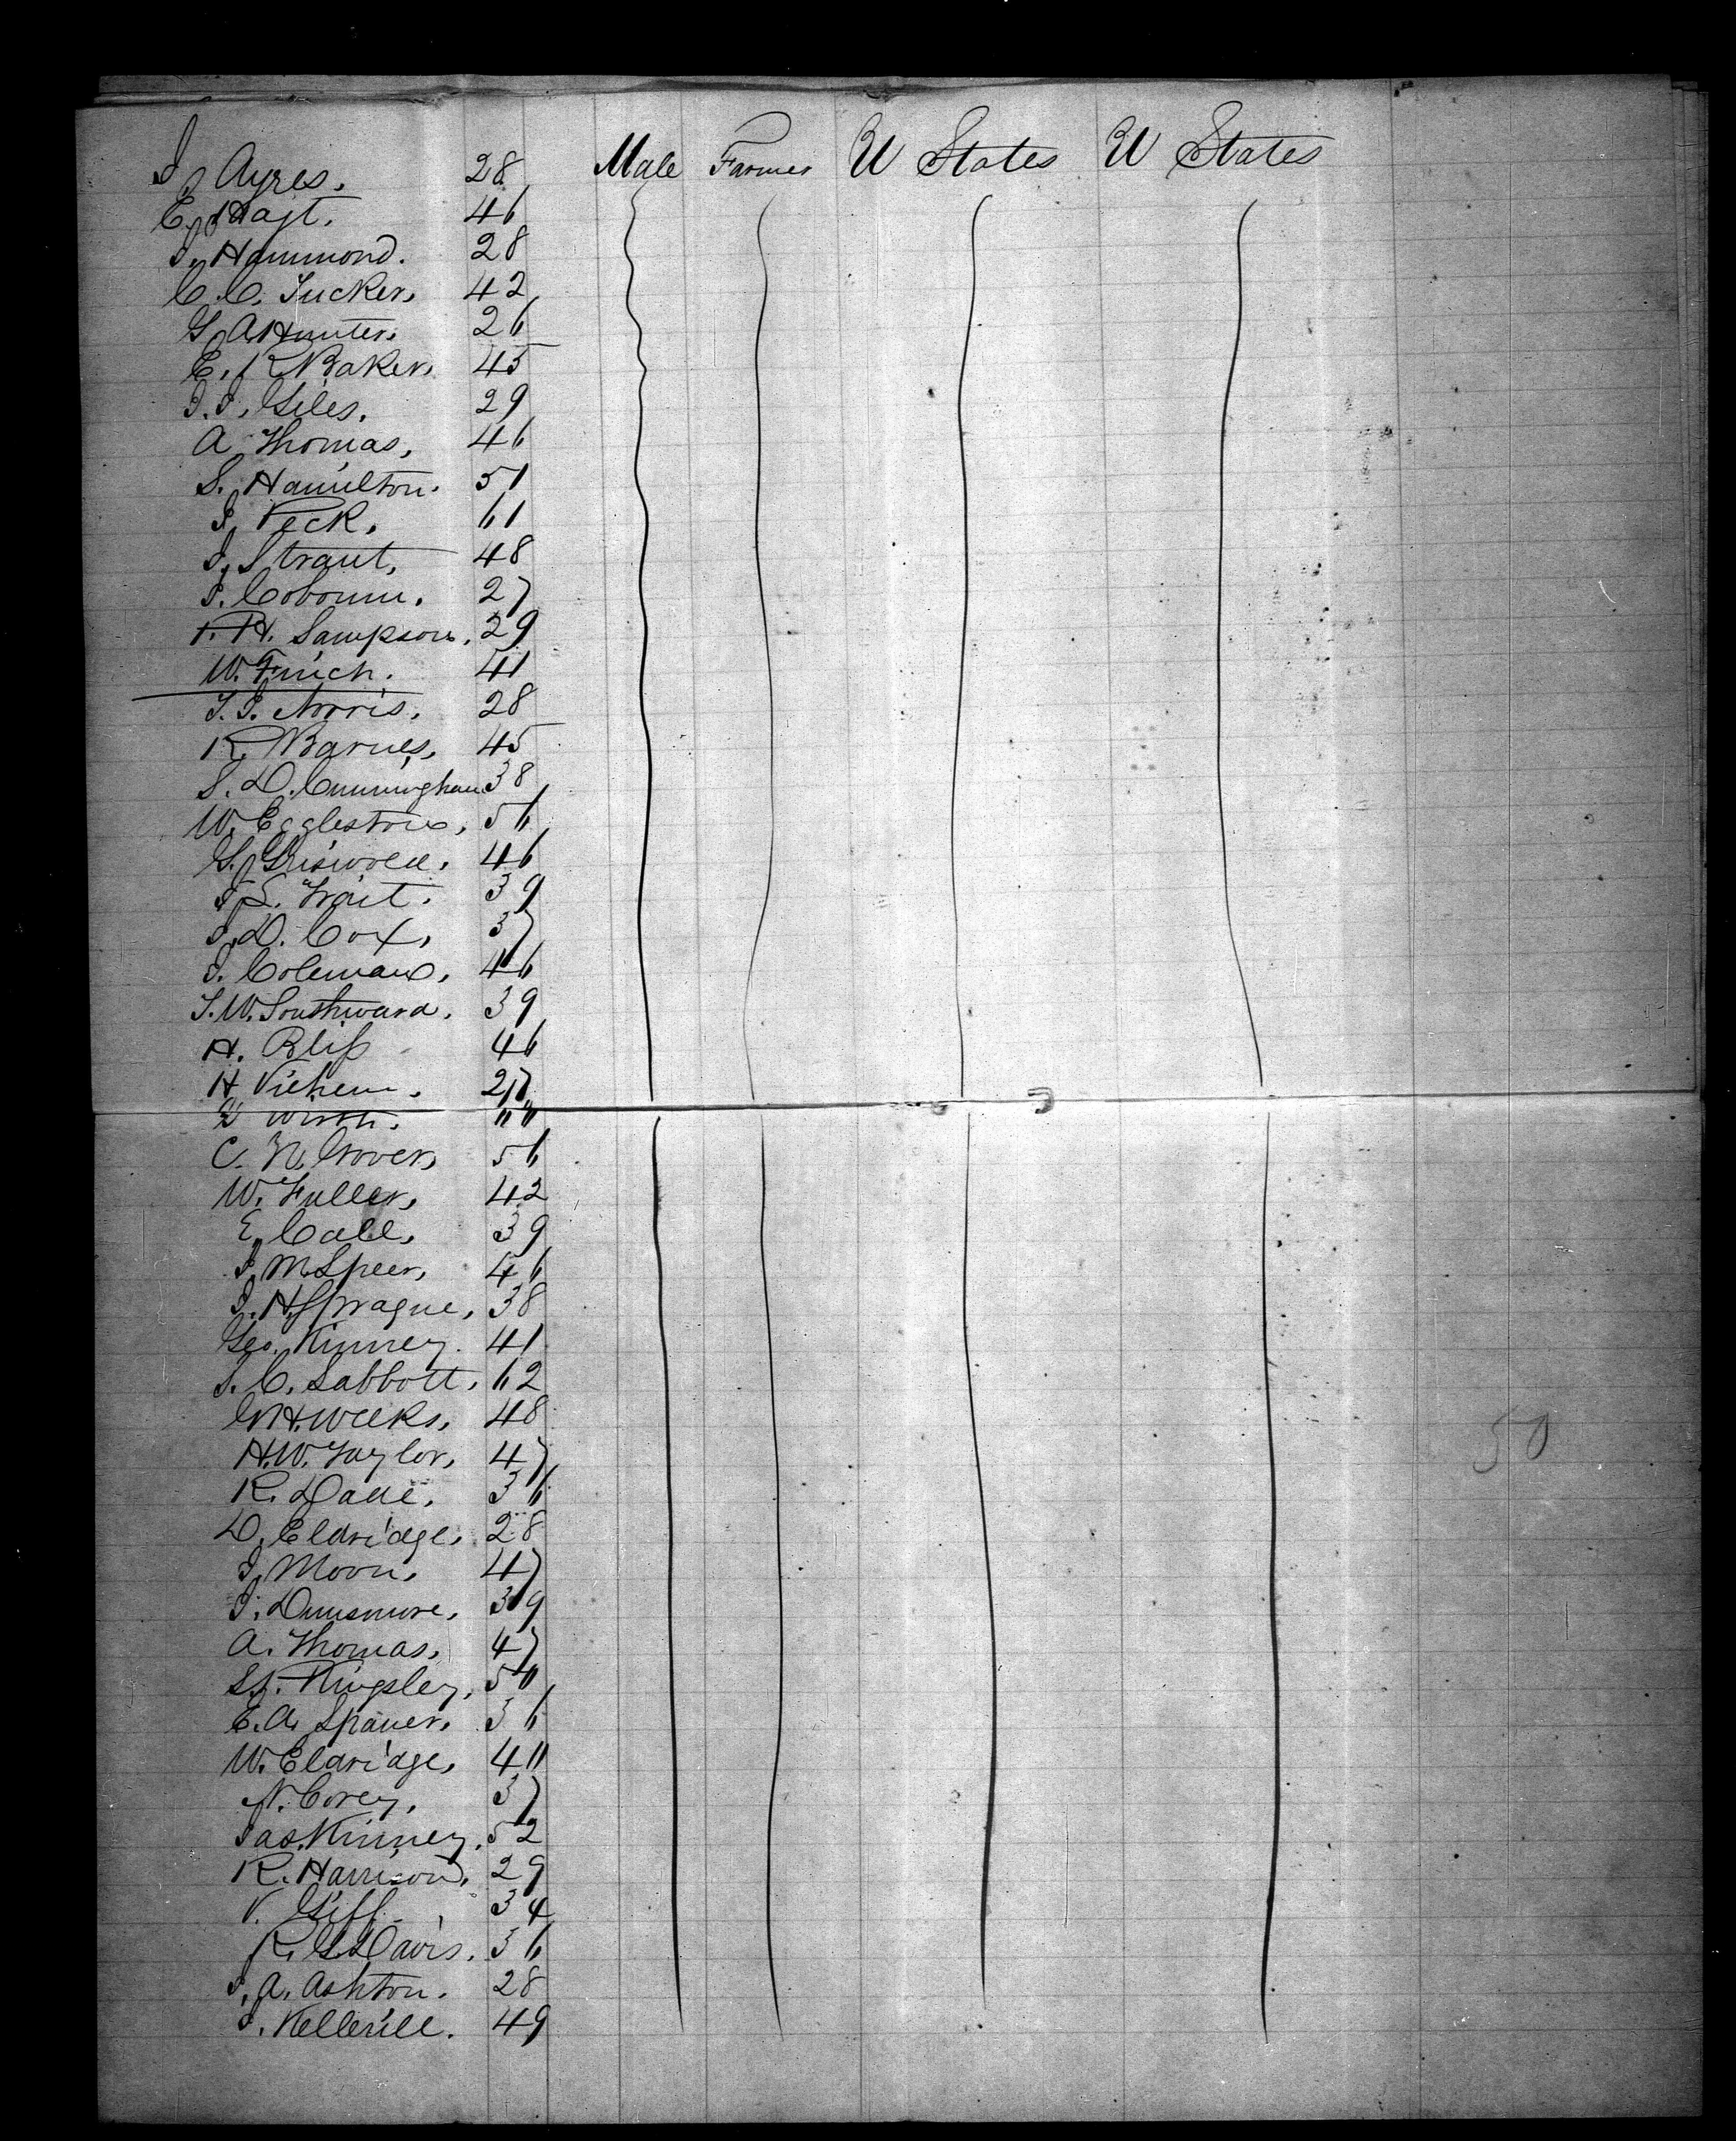 J. Ayres. 28 Male Farmer U States U States
E. Hajt. 46
J. Hammond. 28
C. C. Tucker, 42
G. A Hunter. 26
E. R Baker, 45
J. J. Giles. 29
A Thomas, 46
S. Hamilton. 51
J. Peck. 61
J. Straut, 48
J. Cobourn. 27
H. Sampson. 29
W. Finch. 41
T. J. Norris, 28
R. Barnes, 45
S. D. Cunningham 38
W. Egglestone, 56
G. Griswold. 46
J S. Trait. 39
J. D. Cox, 37
J. Coleman, 46
T. W. Southward. 39
H. Bliss 46
H 27
Wirth. "
C. N. Grover, 56
W. Fuller, 42
E. Call, 39
J. M. Speer, 46
J. H. Sprague, 38
Geo. Kinney. 41
J. C. Sabbott, 62
H. Weeks, 48
H. W. Taylor, 47
R. Dale. 36
D. Eldridge, 28
J. Moon, 47
J. Dunsmore, 39
A. Thomas, 47
Kingsley, 50
E. A. Spauer. 36
W. Eldridge, 40
N. Corey, 37
Jas. Kinney. 52
R. Harrison, 29
V. Giff. 34
R. G. Davis. 36
J. A. Ashton. 28
J. Kellerill. 49
50